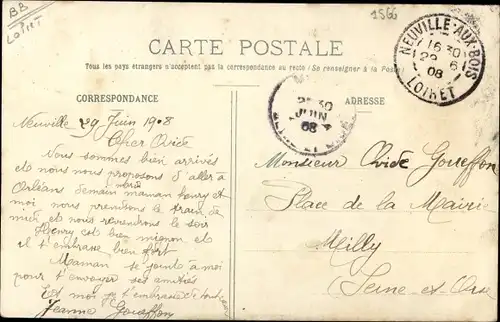 BB
LOIRET
1566
CARTE POSTALE
Tous les pays étrangers n'acceptent pas la correspondance au recto (Se renseigner à la Poste)
NEUVILLE-AUX-BOIS
16 30
29 6
08
LOIRET
CORRESPONDANCE
ADRESSE
30
JUIN
08
Neuville 29 Juin 1908
Cher Ovide
Nous sommes bien arrivés
et nous nous proposons d'aller à
Orléans demain maman henry et
moi nous prendrons le train de
midi et nous reviendrons le soir
Henry est bien mignon et
il t'embrasse bien fort
Maman se joint à moi
pour t'envoyer ses amitiés
Et moi je t'embrasse
Jeanne Goueffon
Monsieur Ovide Goueffon
Place de la Mairie
Milly
Seine et Oise